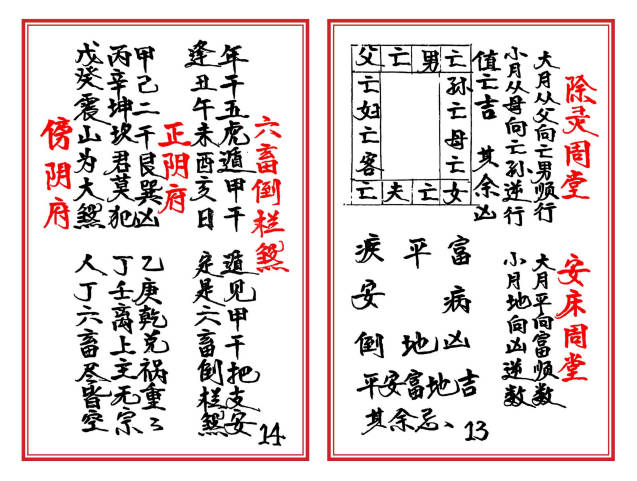 除灵周堂
大月从父向亡男顺行
小月从母向亡孙逆行
值亡吉 其余凶
父亡男亡
亡 孙
妇 亡
亡 母
客 亡
亡夫亡女
安床周堂
大月平向富顺数
小月地向凶逆数
疾平富
安 病
倒地凶
平安富地吉
其余忌、
13
六畜倒栏煞
年干五虎遁甲干
遁见甲干把支安
逢丑午未酉亥日
定是六畜倒栏煞
正阴府
甲己二干艮巽凶
乙庚乾兑祸重々
丙辛坤坎君莫犯
丁壬离上主无宗
戊癸震山为大煞
人丁六畜尽皆空
傍阴府
14